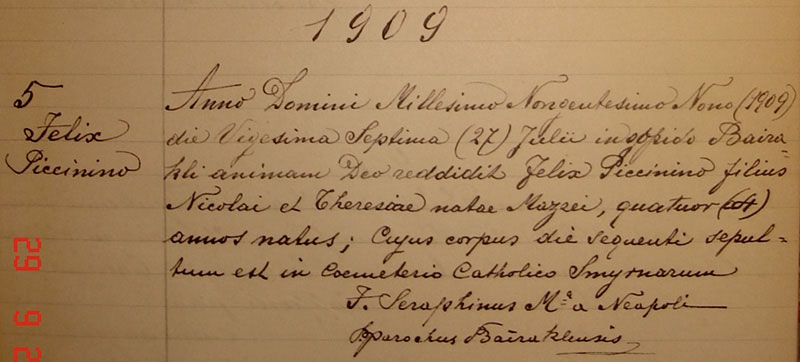 1909
5
Felix
Piccinino
Anno Domini Millesimo Nongentesimo Nono (1909)
die Vigesima Septima (27) Julii in oppido Baira=
kli animam Deo reddidit Felix Piccinino filius
Nicolai et Theresiae natae Mazzei, quatuor (4)
annos natus; Cujus corpus die sequenti sepul=
tum est in Coemeterio Catholico Smyrnarum
F. Seraphinus M.a a Neapoli
Parochus Bairaklensis
29 9 2